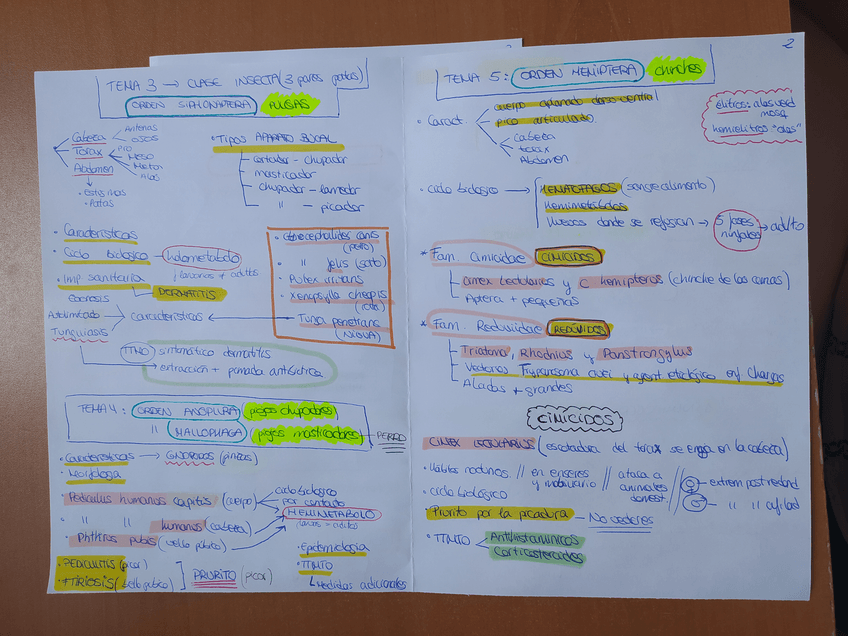 TEMA 3 → CLASE INSECTA (3 pares patas)
ORDEN SIPHONAPTERA PULGAS
Cabeza
Antenas
Tórax
Pro
Meso
Meta
Alas
Abdomen
Patas
• Tipos APARATO BUCAL
cortador - chupador
masticador
chupador - lamedor
" - picador
• Características
• Ciclo biológico → holometábolo
larvarias ≠ adultos
• Imp sanitaria → DERMATITIS
características
Tunguiasis
TTMTO sintomático dermatitis
extracción + pomada antibiótica
• Ctenocephalides canis
(perro)
• " felis (gato)
• Pulex irritans
• Xenopsylla cheopis
(rata)
• Tunga penetrans
(NIGUA)
TEMA 4: ORDEN ANOPLURA piojos chupadores
" MALLOPHAGA piojos masticadores → PERRO
• Características → (pinzas)
• Pediculus humanus capitis (cuerpo)
• " " humanus (cabeza)
• Phthirus pubis (vello púbico)
ciclo biológico
por contacto
HEMIMETABOLO
• PEDICULITIS (picor)
(vello pubico)
PRURITO (picor)
• Epidemiología
• TTMTO
Medidas adicionales
2
TEMA 5: ORDEN HEMIPTERA chinches
• Caract.
cuerpo aplanado dorso central
pico articulado
Cabeza
torax
Abdomen
élitros: alas
hemielitros "alas"
• ciclo biológico → HEMATOFAGOS (sangre alimento)
Hemimetábolos
Huevos donde se refugian → 5 fases ninfales → adulto
* Fam Cimicidae CIMICIDOS
Cimex lectularius y C hemipterus (chinche de las camas)
Aptera + pequeñas
* Fam. Reduviidae REDUVIDOS
Triatoma, Rhodnius y Panstrongylus
Vectores Trypanosoma cruzi y agent etiológico enf chagas
Aladas + grandes
CIMICIDOS
CIMEX LECTULARIUS (escotadura del torax se enga en la cabeza)
• Hábitos nocturnos. // en enseres y mobiliario // ataca a animales domest. // ♀ → extrem post redond
♂ → " " afilad
• ciclo biológico
• Prurito por la picadura → No vectores
• TTMTO
Antihistamínicos
Corticosteroides